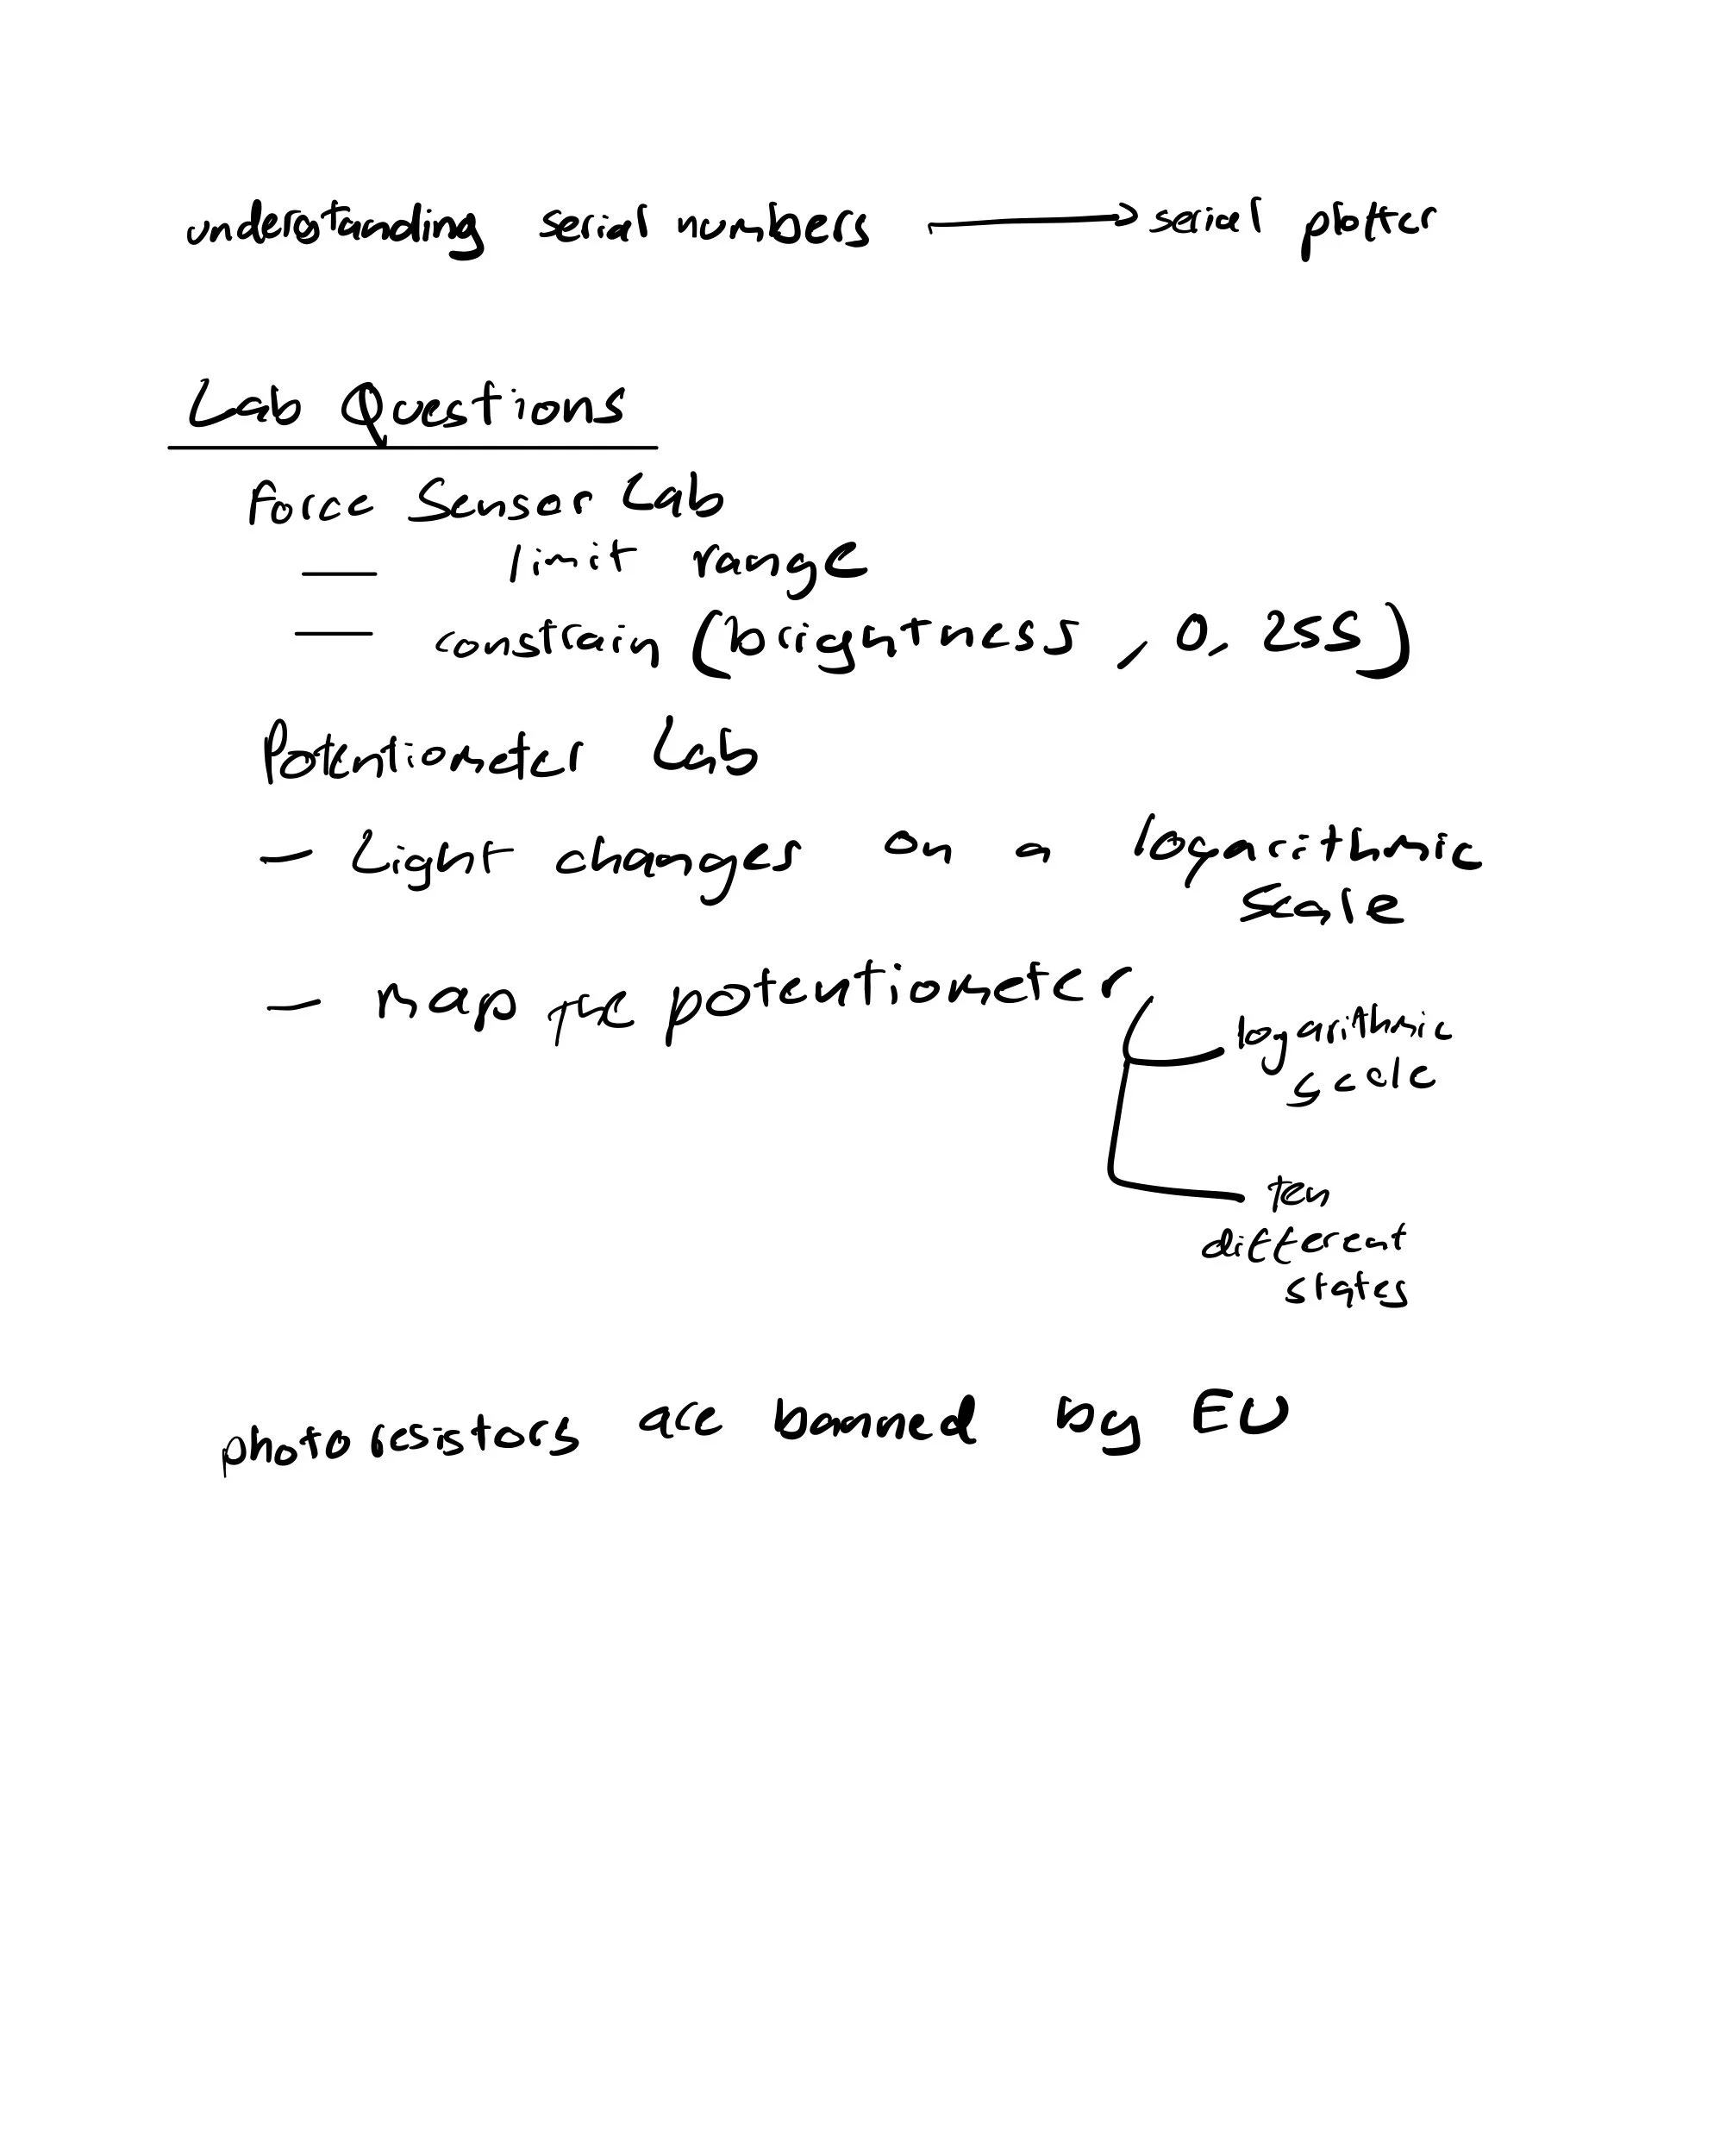 understanding serial numbers → serial plotter
Lab Questions
Force Sensor Lab
— limit range
— constrain (brightness, 0, 255)
Potentiometer Lab
- Light changes on a logarithmic
scale
- map the potentiometer
logarithmic
scale
ten
different
states
photo resistors are banned by EU